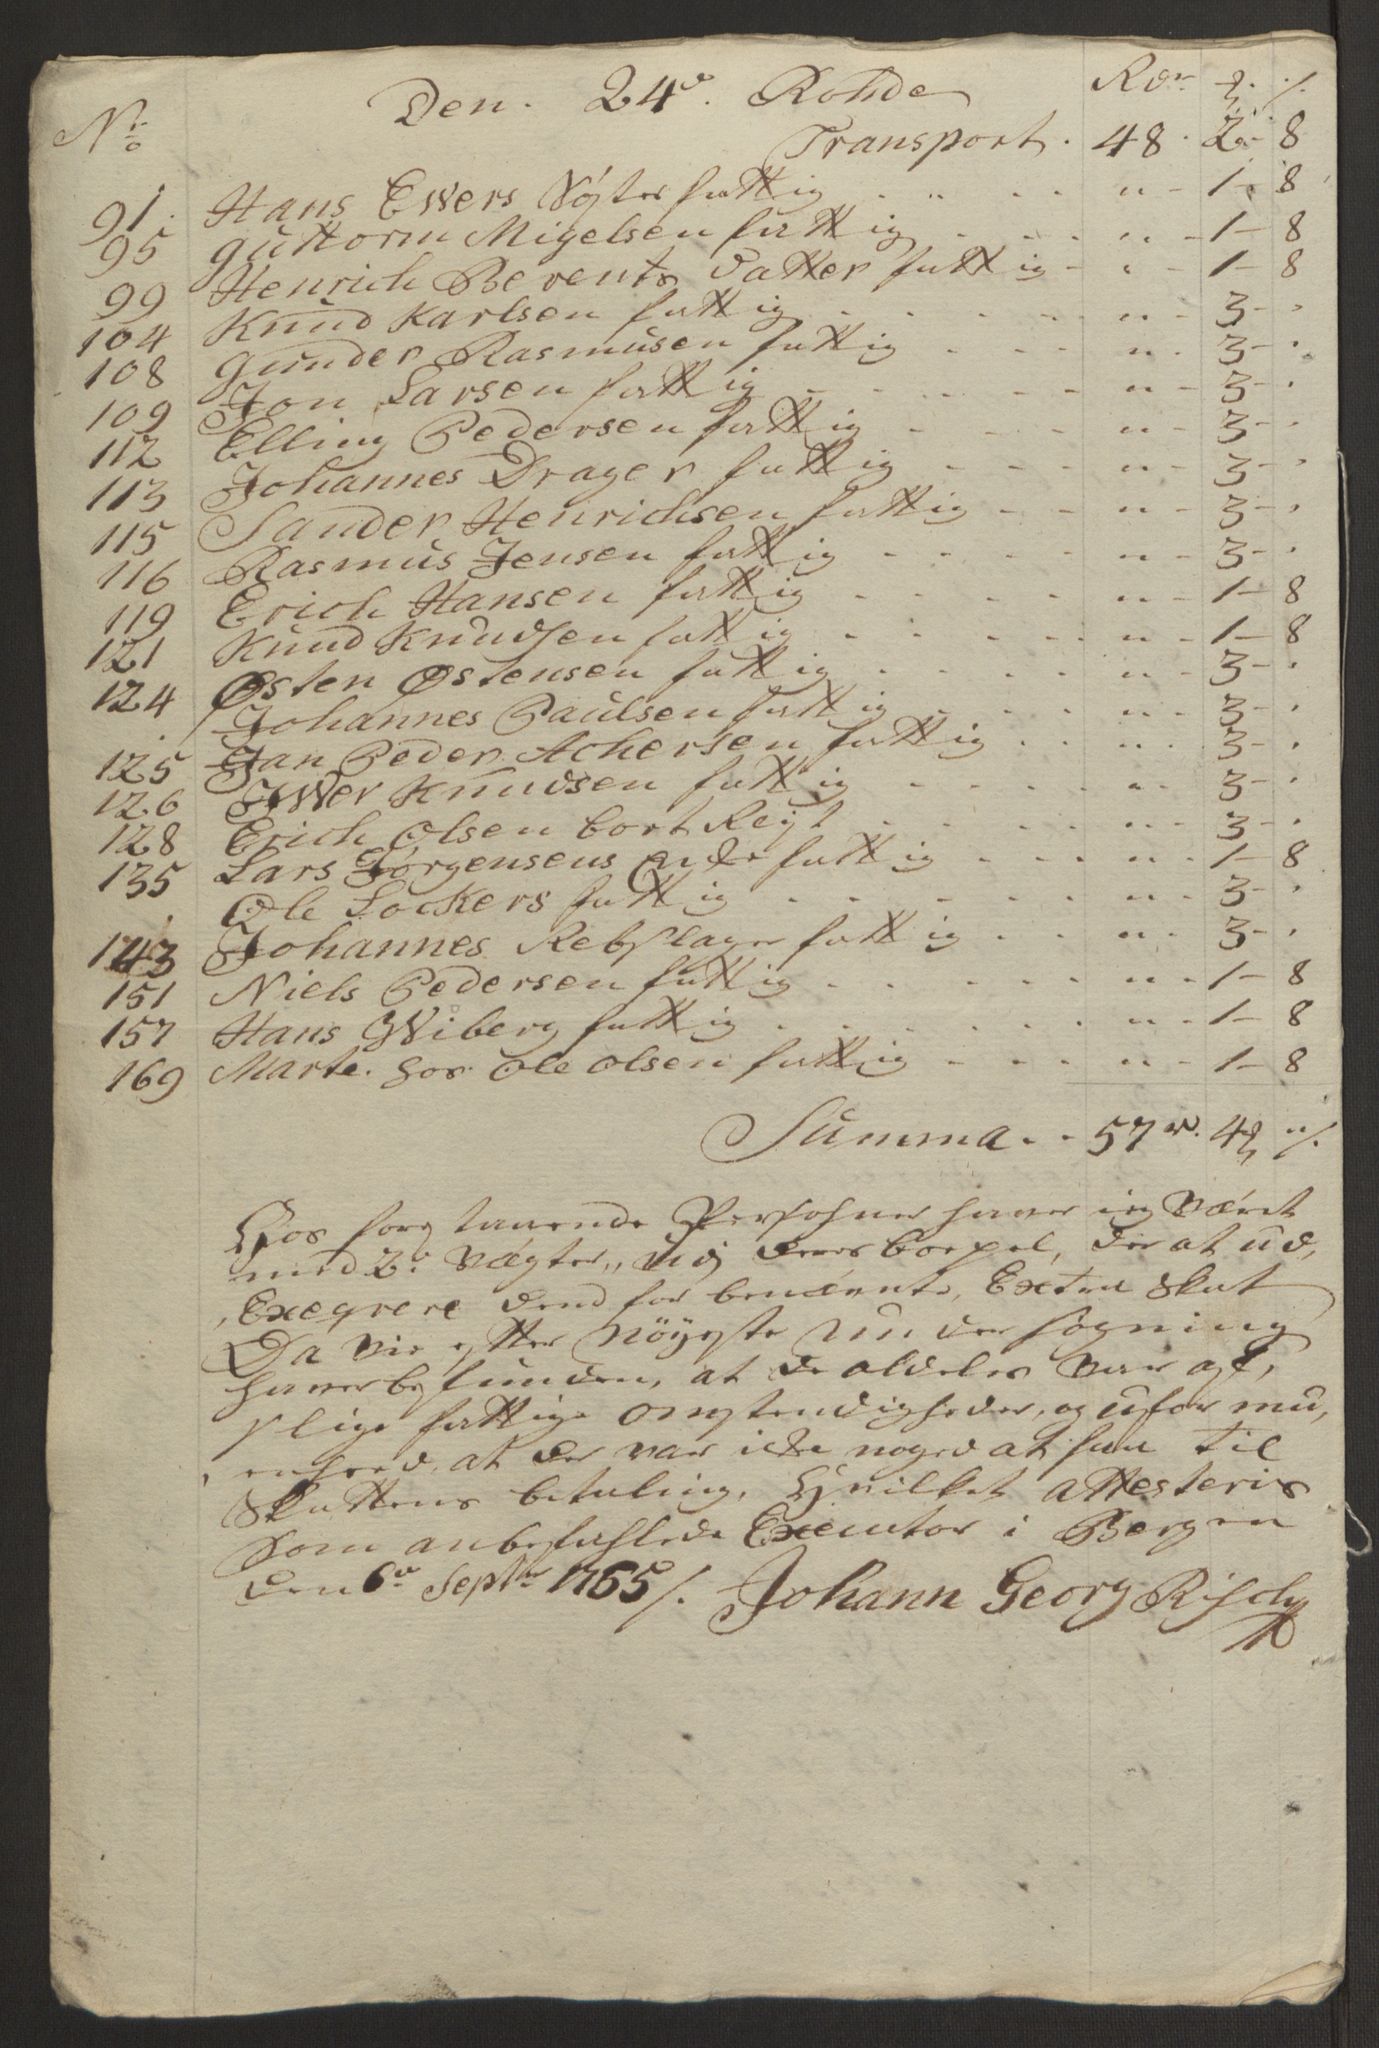 Den. 24de Rohde
No Rdr ꝑ ß
Transport. 48. 2 - 8
91. Hans Ewers Vögter fattig . . „ - 1 - 8
95 Guttorm Migelsen fattig . . . „ - 1 - 8
99 Henrich Berents Datter fattig - „ - 1 - 8
104 Knud Karlsen fattig . . . „ - 3 - „
108 Gunder Rasmusen fattig . . . „ - 3 - „
109 Jon Larsen fattig . . . „ - 3 - „
112 Elling Pedersen fattig . . . „ - 3 - „
113 Johannes Drager fattig . . . „ - 3 - „
115 Sander Henrichsen fattig - - „ - 3 - „
116 Rasmus Jensen fattig . . . „ - 3 - „
119 Erich Hansen fattig . . . „ - 1 - 8
121 Knud Knudsen fattig . . . „ - 1 - 8
124 Østen Østensen fattig . . . „ - 3 - „
. Johannes Paulsen fattig . . . „ - 3 - „
125 Jan Peder Achersen fattig . . „ - 3 - „
126 Iwer Knudsen fattig . . . „ - 3 - „
128 Erich Olsen bort Reyst . . . „ - 3 - „
135 Lars Jörgensens Enke fattig . . . „ - 1 - 8
. Ole Lockers fattig . . . „ - 3 - „
143 Johannes Rebslager fattig . . „ - 3 - „
151 Niels Pedersen fattig . . . „ - 1 - 8
157 Hans Wiberg fattig . . . „ - 1 - 8
169 Marte hos Ole Olsen fattig - - „ - 1 - 8
Summa . . 57 rd. 4 ꝑ „ ß
Hos foregaaende Persohner haver ieg Været
med 2de Vægter, udj deres boepæl, der at ud,
Exeqvere dend for benævnte, Extra Skat
Da vie efter nöyeste Under søgning
haver befunden, at de aldeles var af,
slige fattige Omstendigheder, og ufor mu,
enhed, at der var icke noged at faae til
Skattens betaling, Hvilket attesteris
Som anbefahlede Executor i Bergen
den 6te Septbr 1765 /. Johann Georg Risch